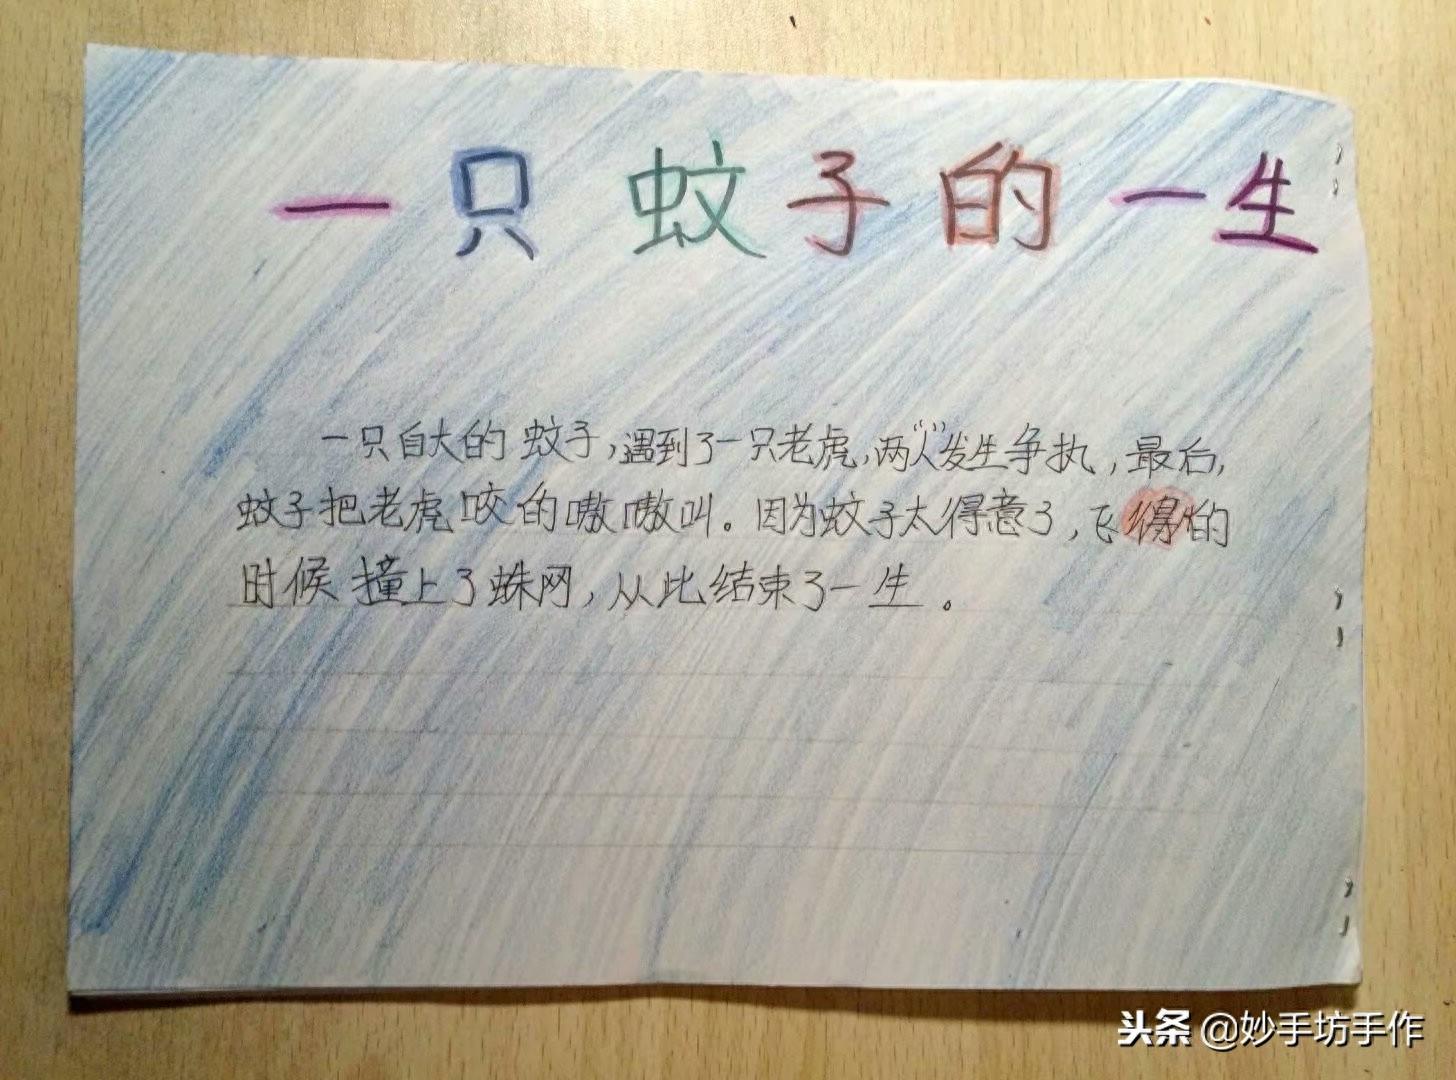 一只蚊子的一生
一只自大的蚊子,遇到了一只老虎,两“人”发生争执,最后,
蚊子把老虎咬的嗷嗷叫。因为蚊子太得意了,飞得的
时候撞上了蛛网,从此结束了一生。
头条 @妙手坊手作